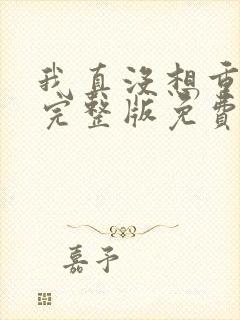 我真没想重
完整版免费
嘉予